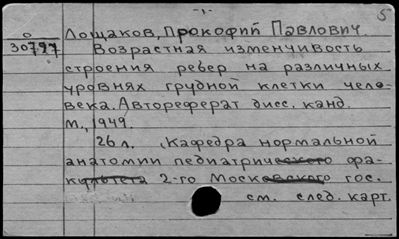 -1-
5
О
30797
Лощаков, Прокофий Павлович.
Возрастная изменчивость
строения ребер на различных
уровнях грудной клетки чело-
века. Автореферат дисс. канд.
М., 1949.
26 л. (Кафедра нормальной
анатомии педиатрического фа-
культета 2-го Московского гос.
см. след. карт.